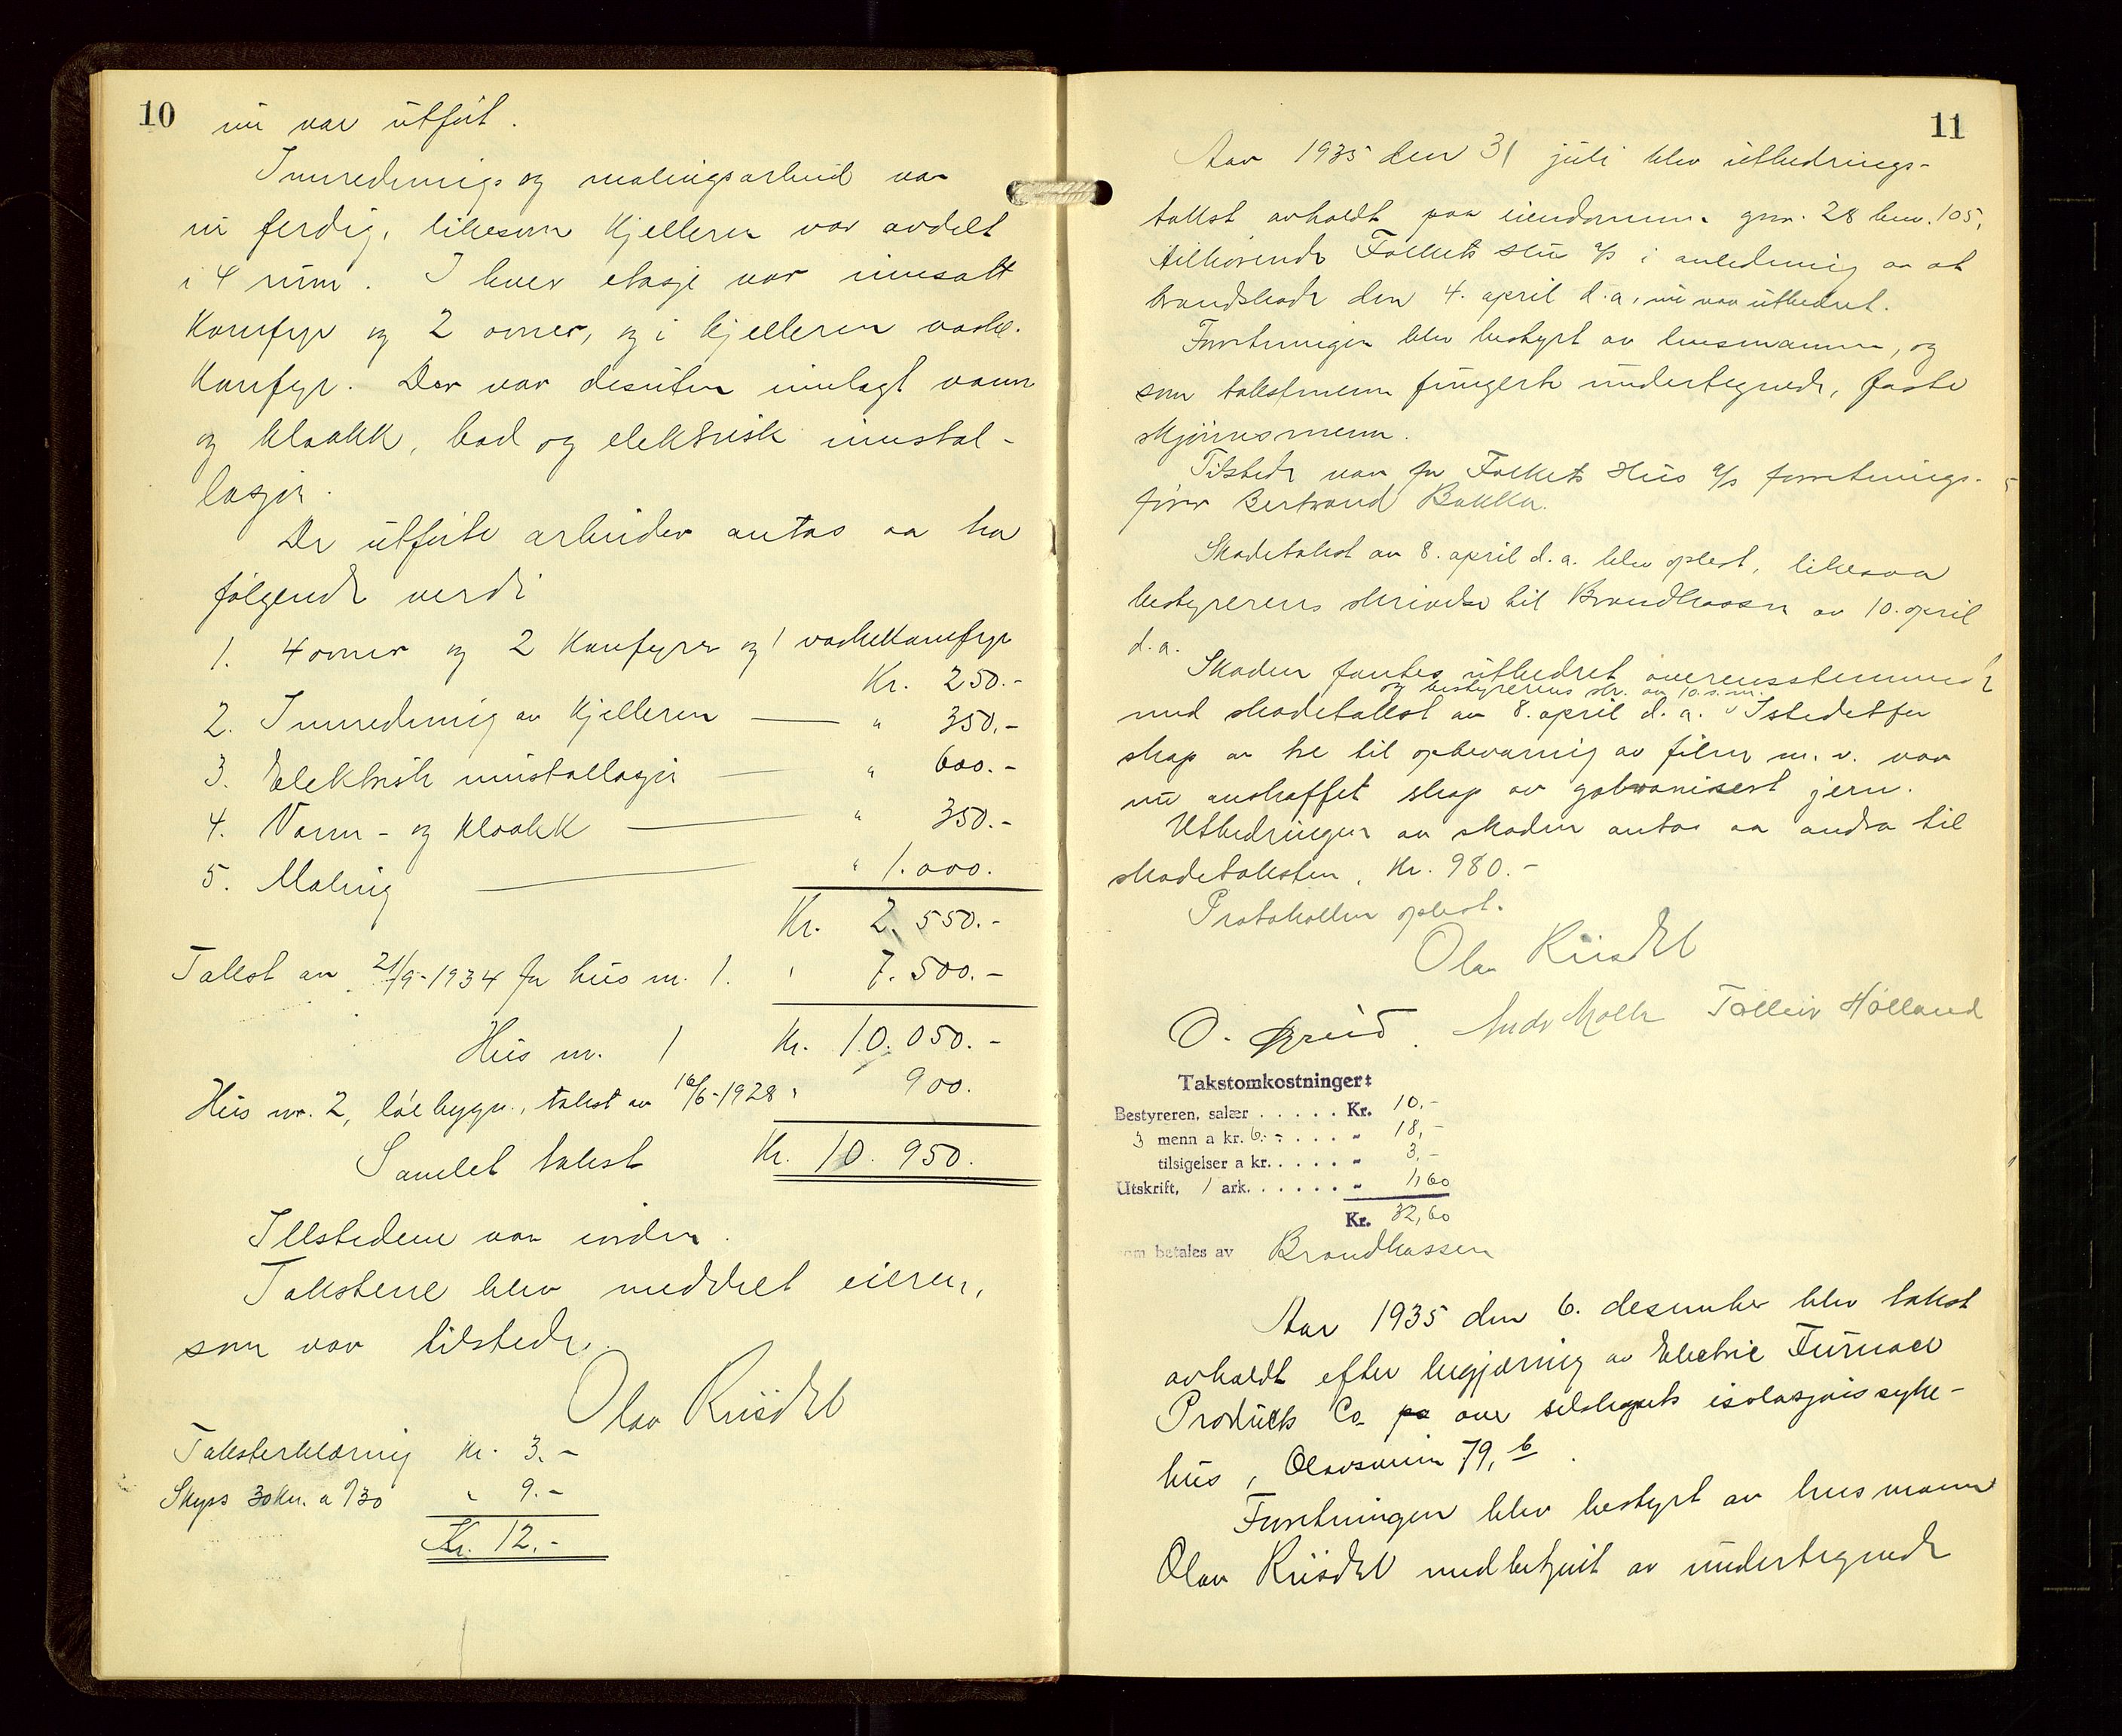 10
nu var utført.
Innrednings og malingsarbeid var
nu ferdig, likesom kjelleren var avdelt
i 4 rum. I hver etasje var innsatt
komfyr og 2 ovner, og i kjelleren vaske-
komfyr. Der var desuten innlagt vann
og kloakk, bad og elektrisk innstal-
lasjon.
De utførte arbeider antas aa ha
følgende verdi
1. 4 ovner og 2 komfyrer og 1 vaskekomfyr
Kr. 250.-
2. Innredning av kjelleren — " 350.-
3. Elektrisk innstallasjon — " 600.-
4. Vann- og kloakk — " 350.-
5. Maling — " 1.000.
Kr. 2.550.-
Takst av 21/9-1934 for hus nr. 1. " 7.500.-
Hus nr. 1 Kr. 10.050.-
Hus nr. 2, løebygn., takst av 16/6-1928 " 900.
Samlet takst Kr. 10.950.
Illstedene var iorden.
Takstene blev meddelt eieren,
som var tilstede.
Olav Riisdal
Taksterklæring Kr. 3.-
Skyss 30 km. a 0/30 " 9.-
Kr. 12.-
11
Aar 1935 den 31 juli blev utbedrings-
takst avholdt paa eiendommen gnr. 28 bnr. 105,
tilhørende Folkets Hus a/s i anledning av at
brandskade den 4. april d.a. nu var utbedret.
Forretningen blev bestyrt av lensmannen, og
som takstmenn fungerte undertegnede, faste
skjønnsmenn.
Tilstede var for Folkets Hus a/s forretnings-
fører Bertrand Bakka.
Skadetakst av 8. april d.a. blev oplest, likesaa
bestyrerens skrivelse til Brandkassen av 10. april
d.a.
Skaden fantes utbedret overensstemmende
og bestyrerens skr. av 10. s.m.
med skadetakst av 8. april d.a. Istedetfor
skap av tre til opbevaring av filme m.v. var
nu anskaffet skap av galvanisert jern.
Utbedringen av skaden antas aa andra til
skadetaksten, Kr. 980.-
Protokollen oplest.
Olav Riisdal
O. Greid. Tolleiv Hølland
Takstomkostninger:
Bestyreren, salær . . . . . Kr. 10,-
3 menn a kr. 6.- . . . . " 18,-
tilsigelser a kr. . . . . " 3,-
Utskrift, 1 ark. . . . . . " 1,60
Kr. 32,60
som betales av Brandkassen
Aar 1935 den 6. desember blev takst
avholdt efter begjæring av Electric Furnace
Products Co. pa over selskapets isolasjonssyke-
hus, 79, b.
Forretningen blev bestyrt av lensmann
Olav Riisdal medbetjent av undertegnede